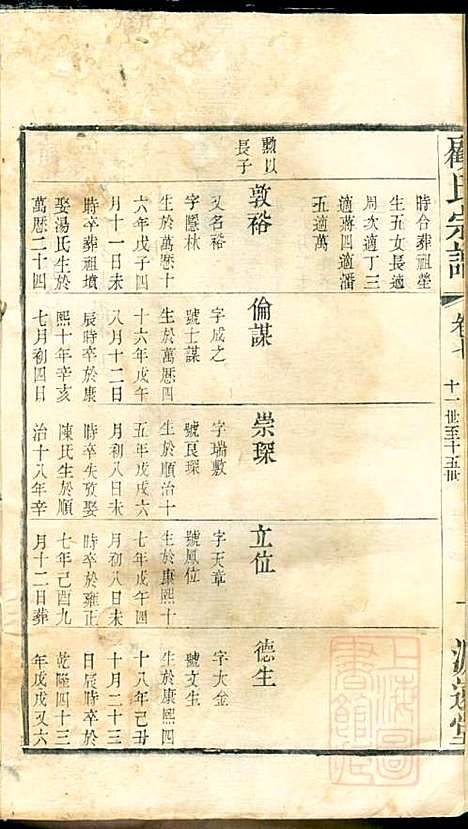 顧氏宗譜
卷七
十一世至十五世
一
源遠堂
時合葬祖塋
生五女長適
周次適丁三
適蔣四適潘
五適萬
勲以
長子
敦裕
又名裕
字隱林
生於萬曆十
六年戊子四
月十一日未
時卒葬祖墳
娶湯氏生於
萬曆二十四
倫謀
字成之
號士謀
生於萬曆四
十六年戊午
八月十二日
辰時卒於康
熙十年辛亥
七月初四日
崇琛
字瑞敷
號良琛
生於順治十
五年戊戌六
月初八日未
時卒失攷娶
陳氏生於順
治十八年辛
立位
字天章
號鳳位
生於康熙十
七年戊午四
月初八日未
時卒於雍正
七年己酉九
月十二日葬
德生
字大金
號文生
生於康熙四
十八年己丑
十月二十三
日辰時卒於
乾隆四十三
年戊戌又六
上海圖書館藏